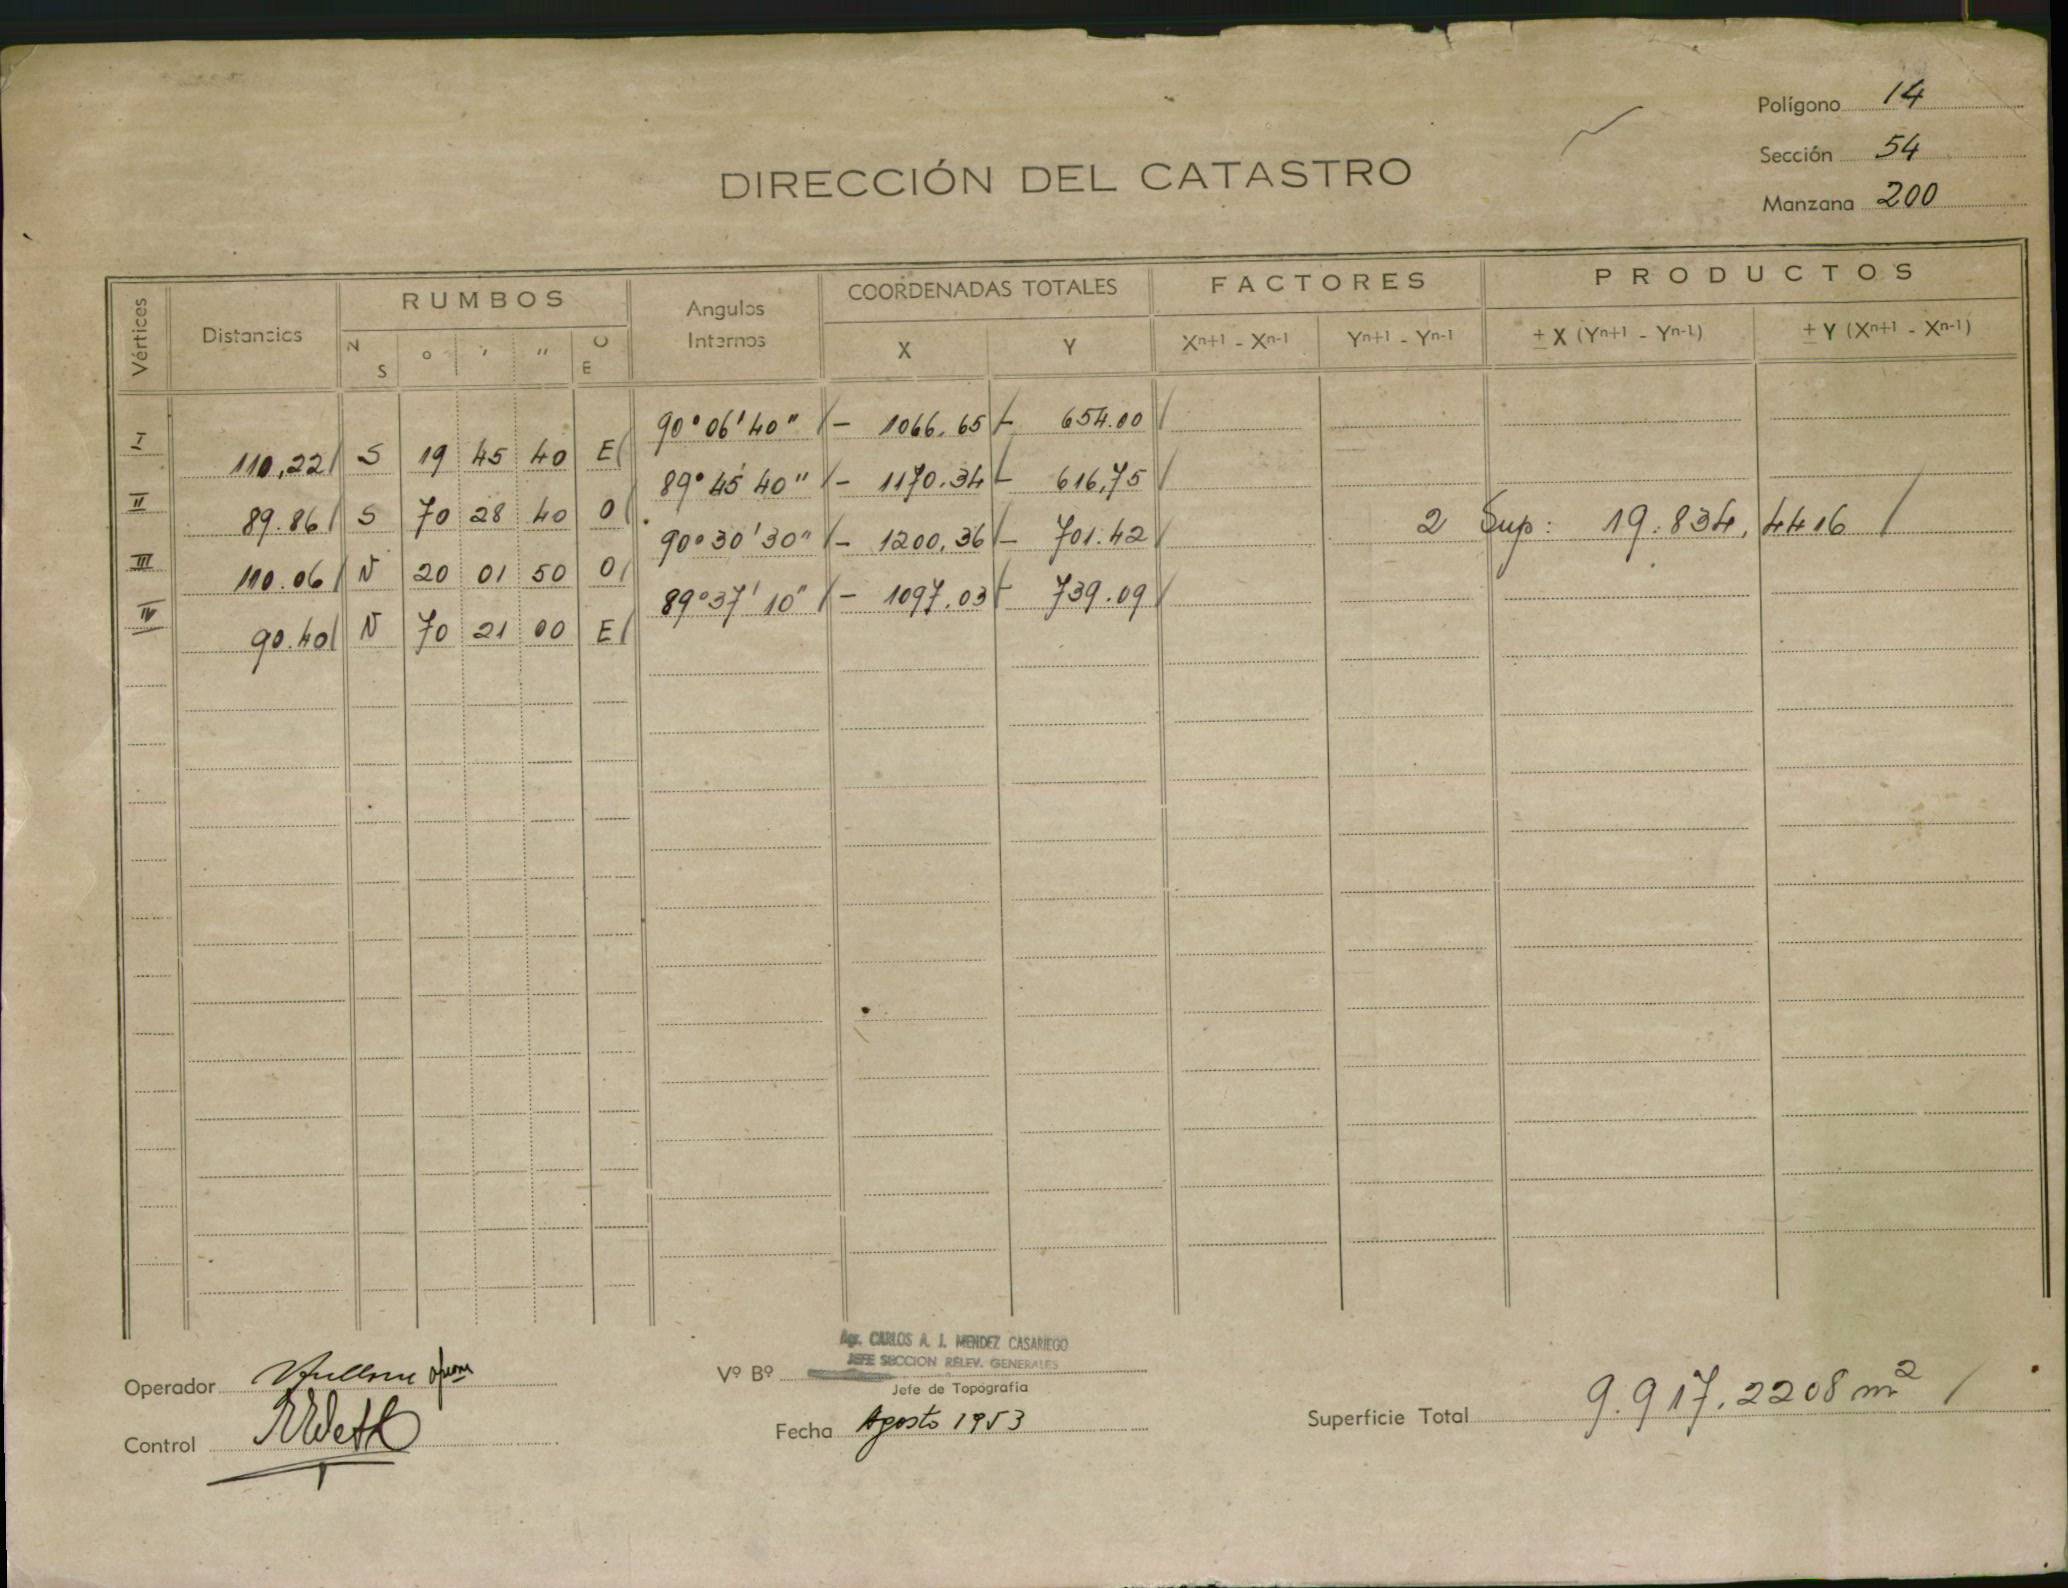 Polígono 14
DIRECCIÓN DEL CATASTRO
Sección 54
Manzana 200
Vértices Distancias RUMBOS Angulos Internos COORDENADAS TOTALES FACTORES PRODUCTOS
N S ° ' '' O E X Y Xn+1 - Xn-1 Yn+1 - Yn-1 ± X (Yn+1 - Yn-1) ± Y (Xn+1 - Xn-1)
90° 06' 40" - 1066.65 - 654.00
I 110,22 S 19 45 40 E
89° 45' 40" - 1170.34 - 616,75
II 89.86 S 70 28 40 O
90° 30' 30" - 1200,36 - 701.42 2 Sup: 19.834,4416
III 110.06 N 20 01 50 O
89° 37' 10" - 1097.03 - 739.09
IV 90.40 N 70 21 00 E
Agr. CARLOS A. J. MENDEZ CASARIEGO
JEFE SECCION RELEV. GENERALES
Operador Vº Bº
Jefe de Topografia
Control Fecha Agosto 1953 Superficie Total 9.917.2208 m2